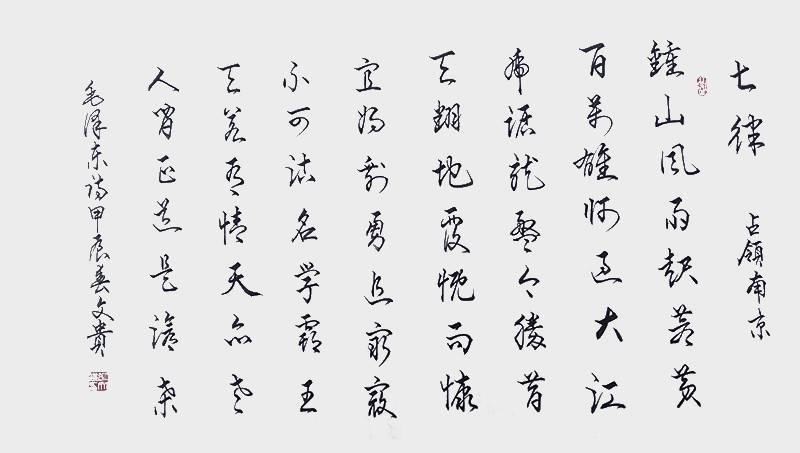 七律 占領南京
鍾山風雨起蒼黄
百萬雄师过大江
虎踞龍盤今勝昔
天翻地覆慨而慷
宜将剩勇追窮寇
不可沽名学霸王
天若有情天亦老
人間正道是滄桑
毛泽东诗甲辰春文貴